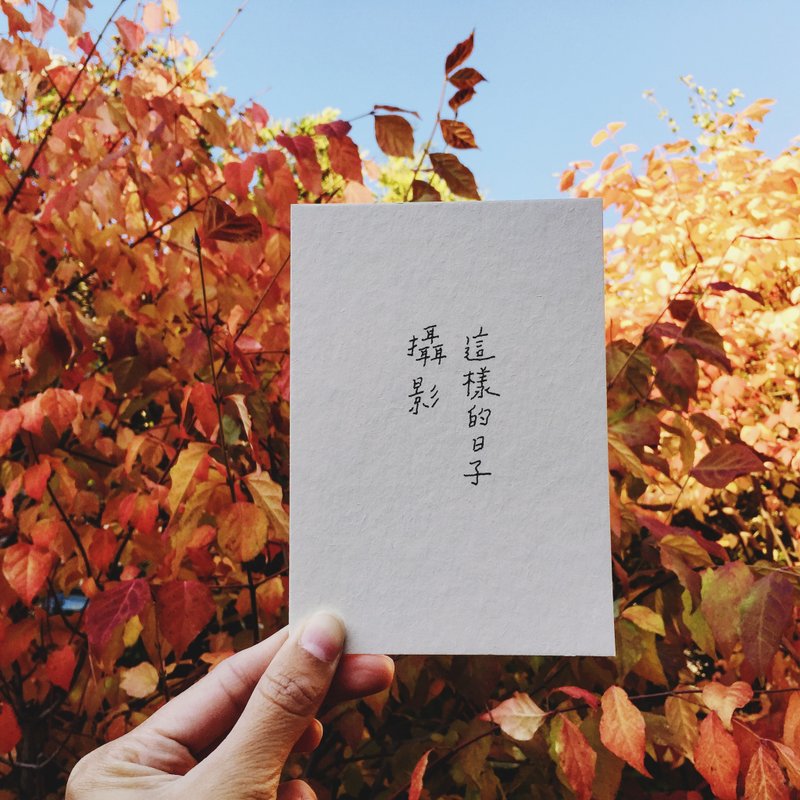 這樣的日子
攝影